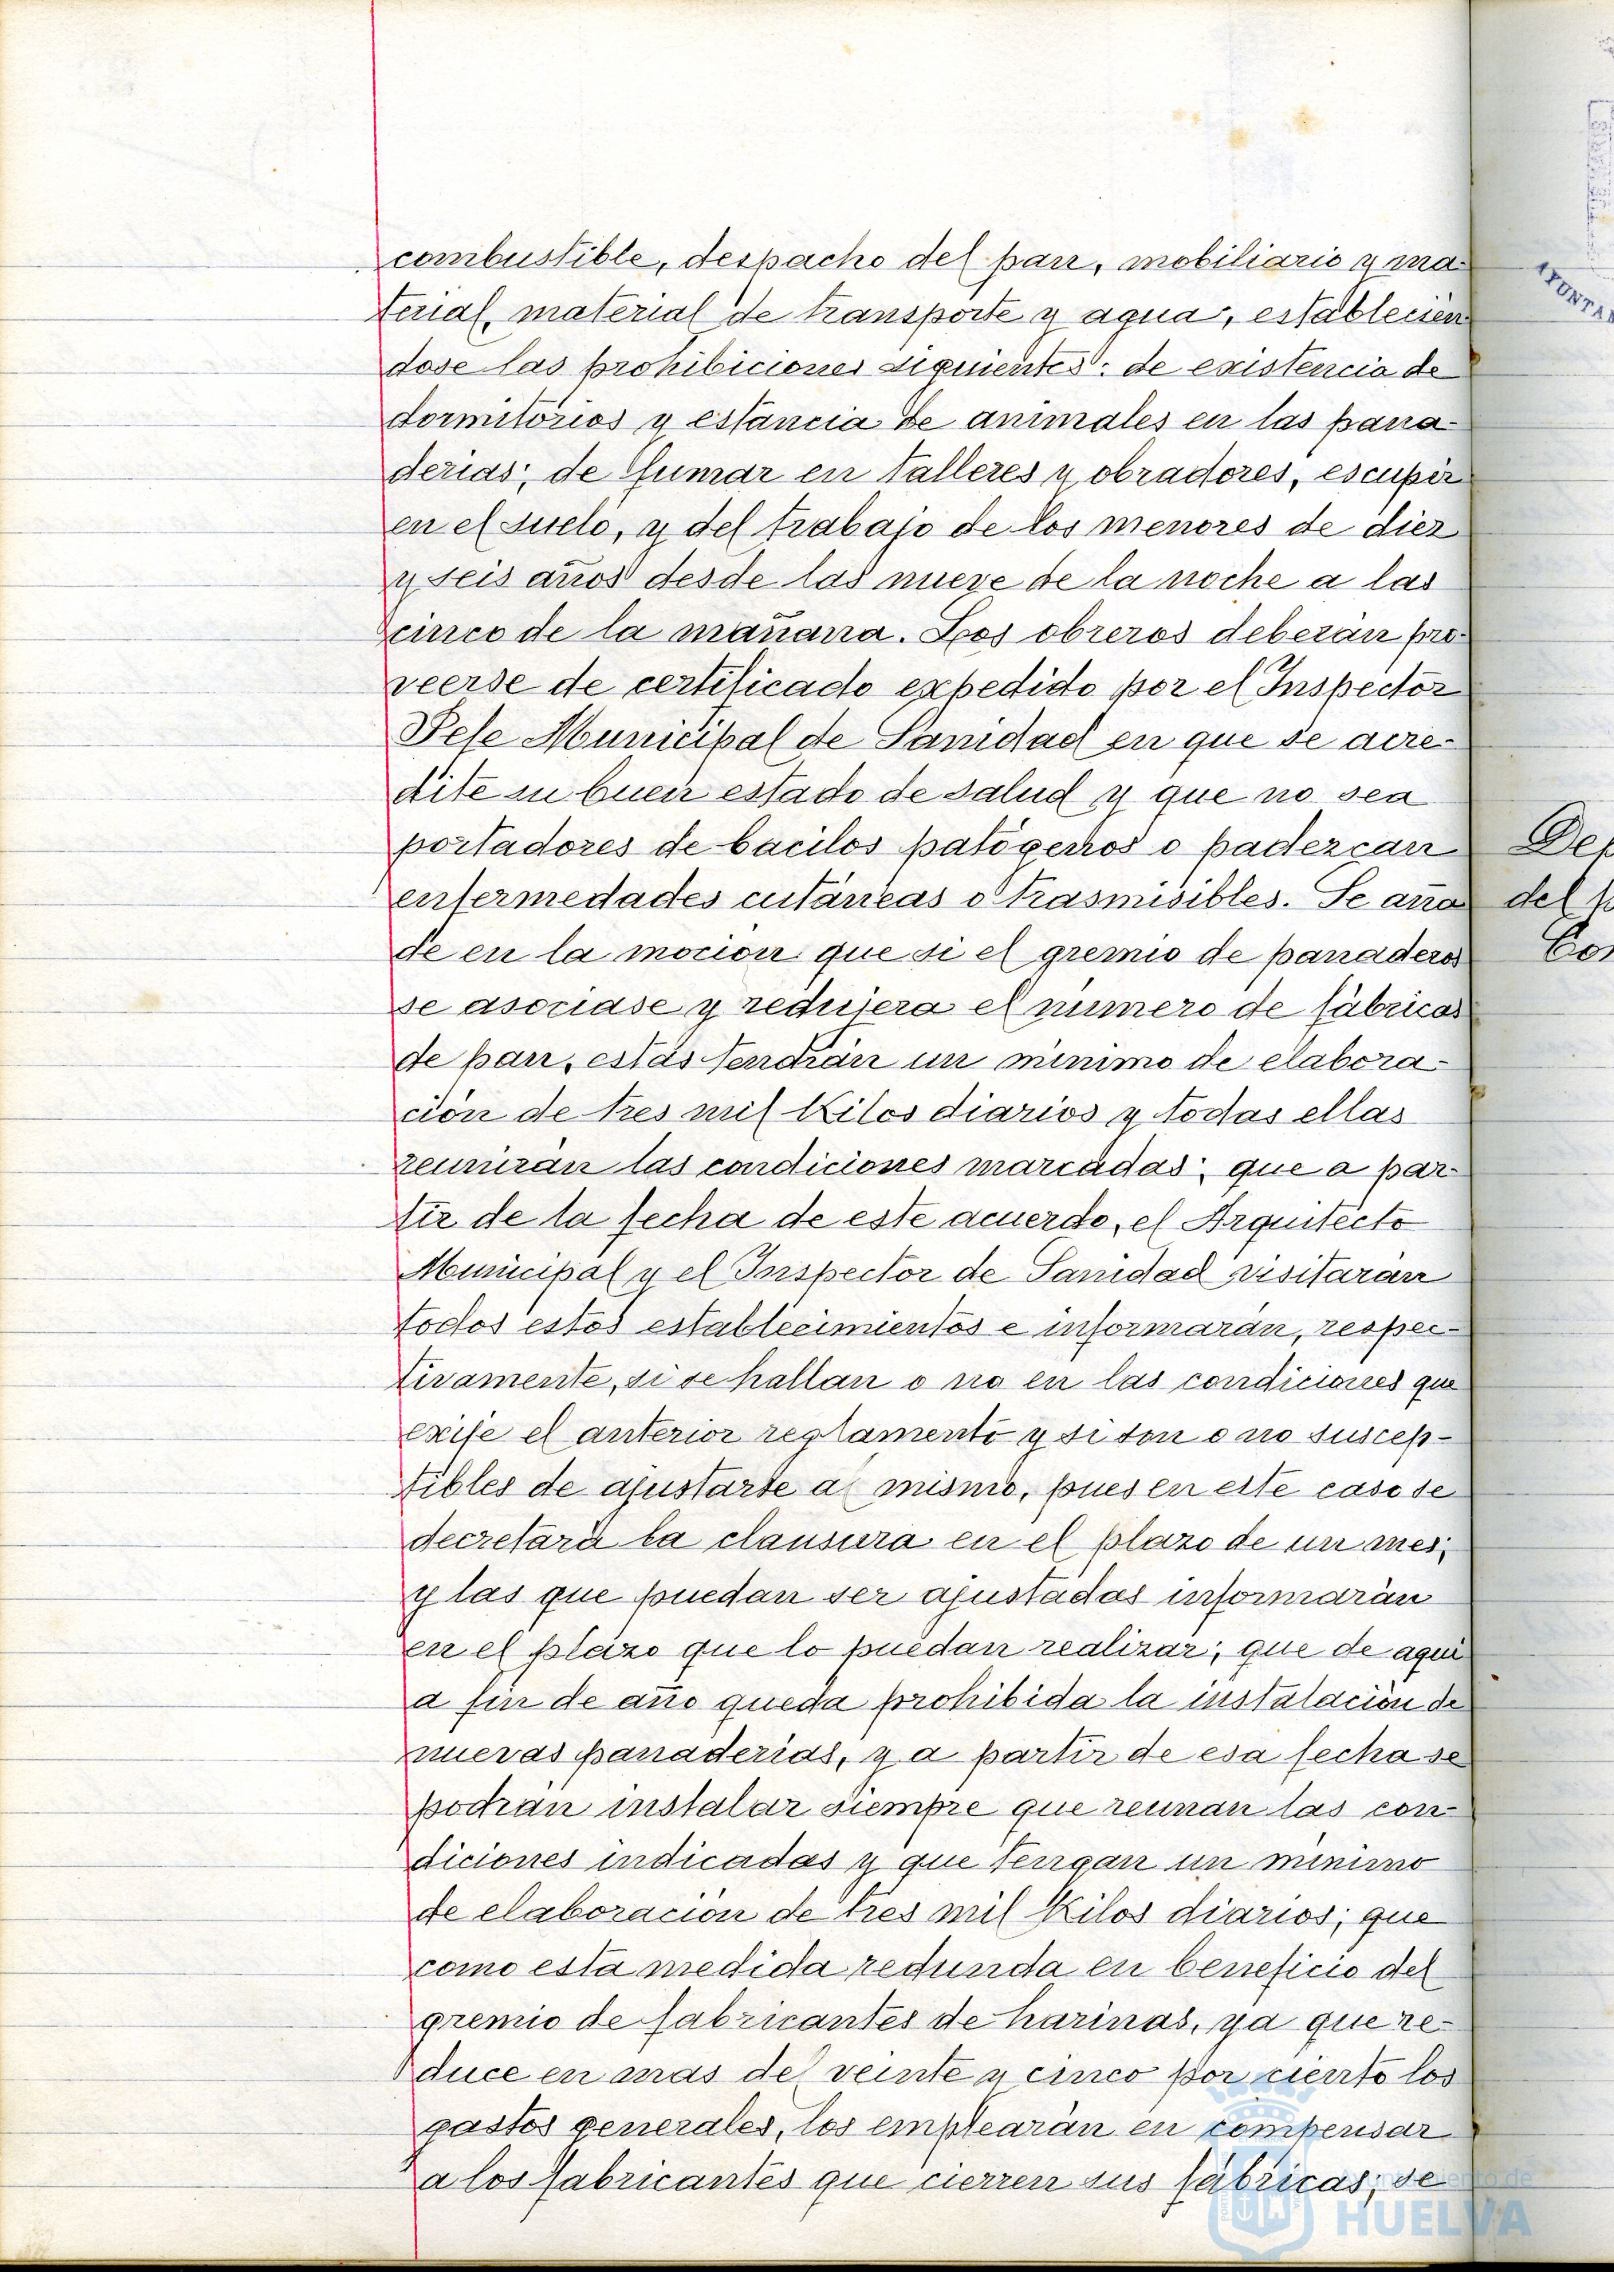 combustible, despacho del pan, mobiliario y ma-
terial, material de transporte y agua, establecien
dose las prohibiciones siguientes: de existencia de
dormitorios y estancia de animales en las pana-
derias; de fumar en talleres y obradores, escupir
en el suelo, y del trabajo de los menores de diez
y seis años desde las nueve de la noche a las
cinco de la mañana. Los obreros deberán pro-
veerse de certificado expedido por el Inspector
Jefe Municipal de Sanidad en que se acre-
dite su buen estado de salud y que no sea
portadores de bacilos patógenos o padezcan
enfermedades cutáneas o trasmisibles. Se aña
de en la mocion que si el gremio de panaderos
se asociase y redujera el número de fábricas
de pan, estas tendrán un minimo de elabora-
ción de tres mil Kilos diarios y todas ellas
reunirán las condiciones marcadas; que a par-
tir de la fecha de este acuerdo, el Arquitecto
Municipal y el Inspector de Sanidad visitarán
todos estos establecimientos e informarán, respec-
tivamente, si se hallan o no en las condiciones que
exije el anterior reglamento y si son o no suscep-
tibles de ajustarse al mismo, pues en este caso se
decretará la clausura en el plazo de un mes;
y las que puedan ser ajustadas informarán
en el plazo que lo puedan realizar; que de aqui
a fin de año queda prohibida la instalación de
nuevas panaderias, y a partir de esa fecha se
podrán instalar siempre que reunan las con-
diciones indicadas y que tengan un minimo
de elaboración de tres mil Kilos diarios; que
como esta medida redunda en beneficio del
gremio de fabricantes de harinas, ya que re-
duce en mas del veinte y cinco por ciento los
gastos generales, los emplearán en compensar
a los fabricantes que cierren sus fábricas; se
Ayuntamiento de
HUELVA